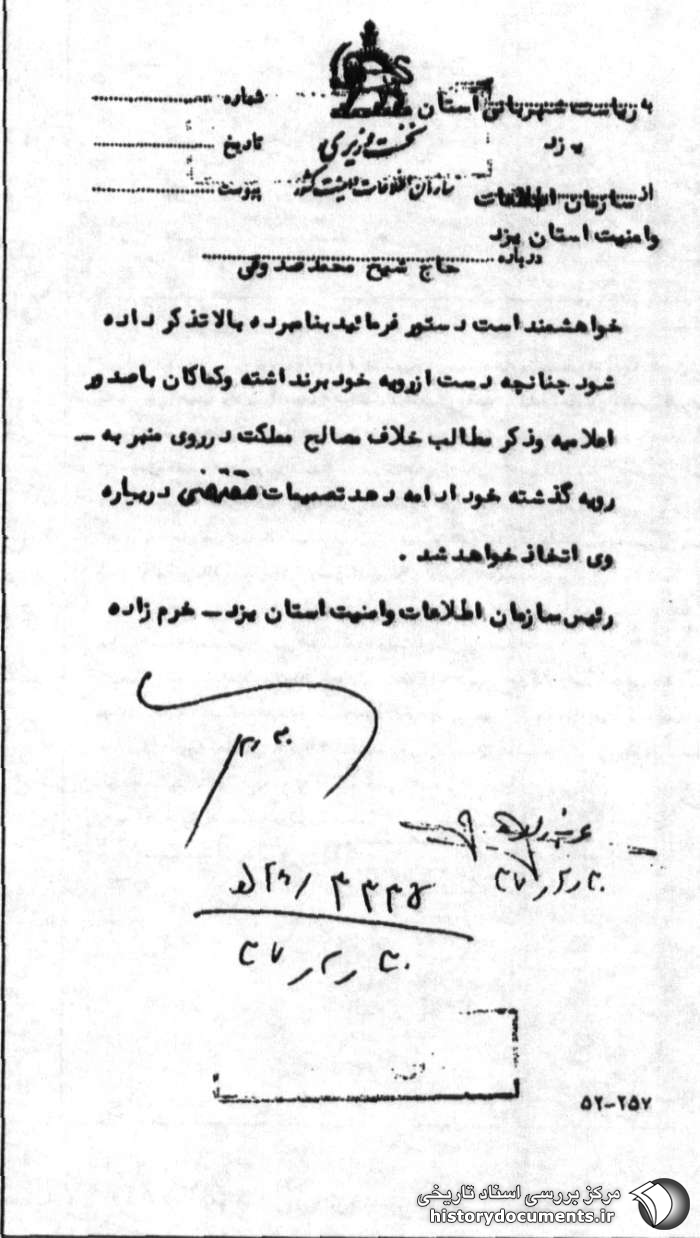 به ریاست شهربانی استان
یزد
شماره
نخست وزیری
تاریخ
سازمان اطلاعات و امنیت کشور
پیوست
از سازمان اطلاعات
وامنیت استان یزد
درباره حاج شیخ محمد صدوقی
خواهشمند است دستور فرمائید بنامبرده بالا تذکر داده
شود چنانچه دست از رویه خود برنداشته وکماکان باصدور
اعلامیه وذکر مطالب خلاف مصالح مملکت درروی منبر به ــ
رویه گذشته خود ادامه دهد تصمیمات مقتضی درباره
وی اتخاذ خواهد شد .
رئیس سازمان اطلاعات وامنیت استان یزد ــ خرم زاده
۵۲-۲۵۷
مرکز بررسی اسناد تاریخی
historydocuments.ir